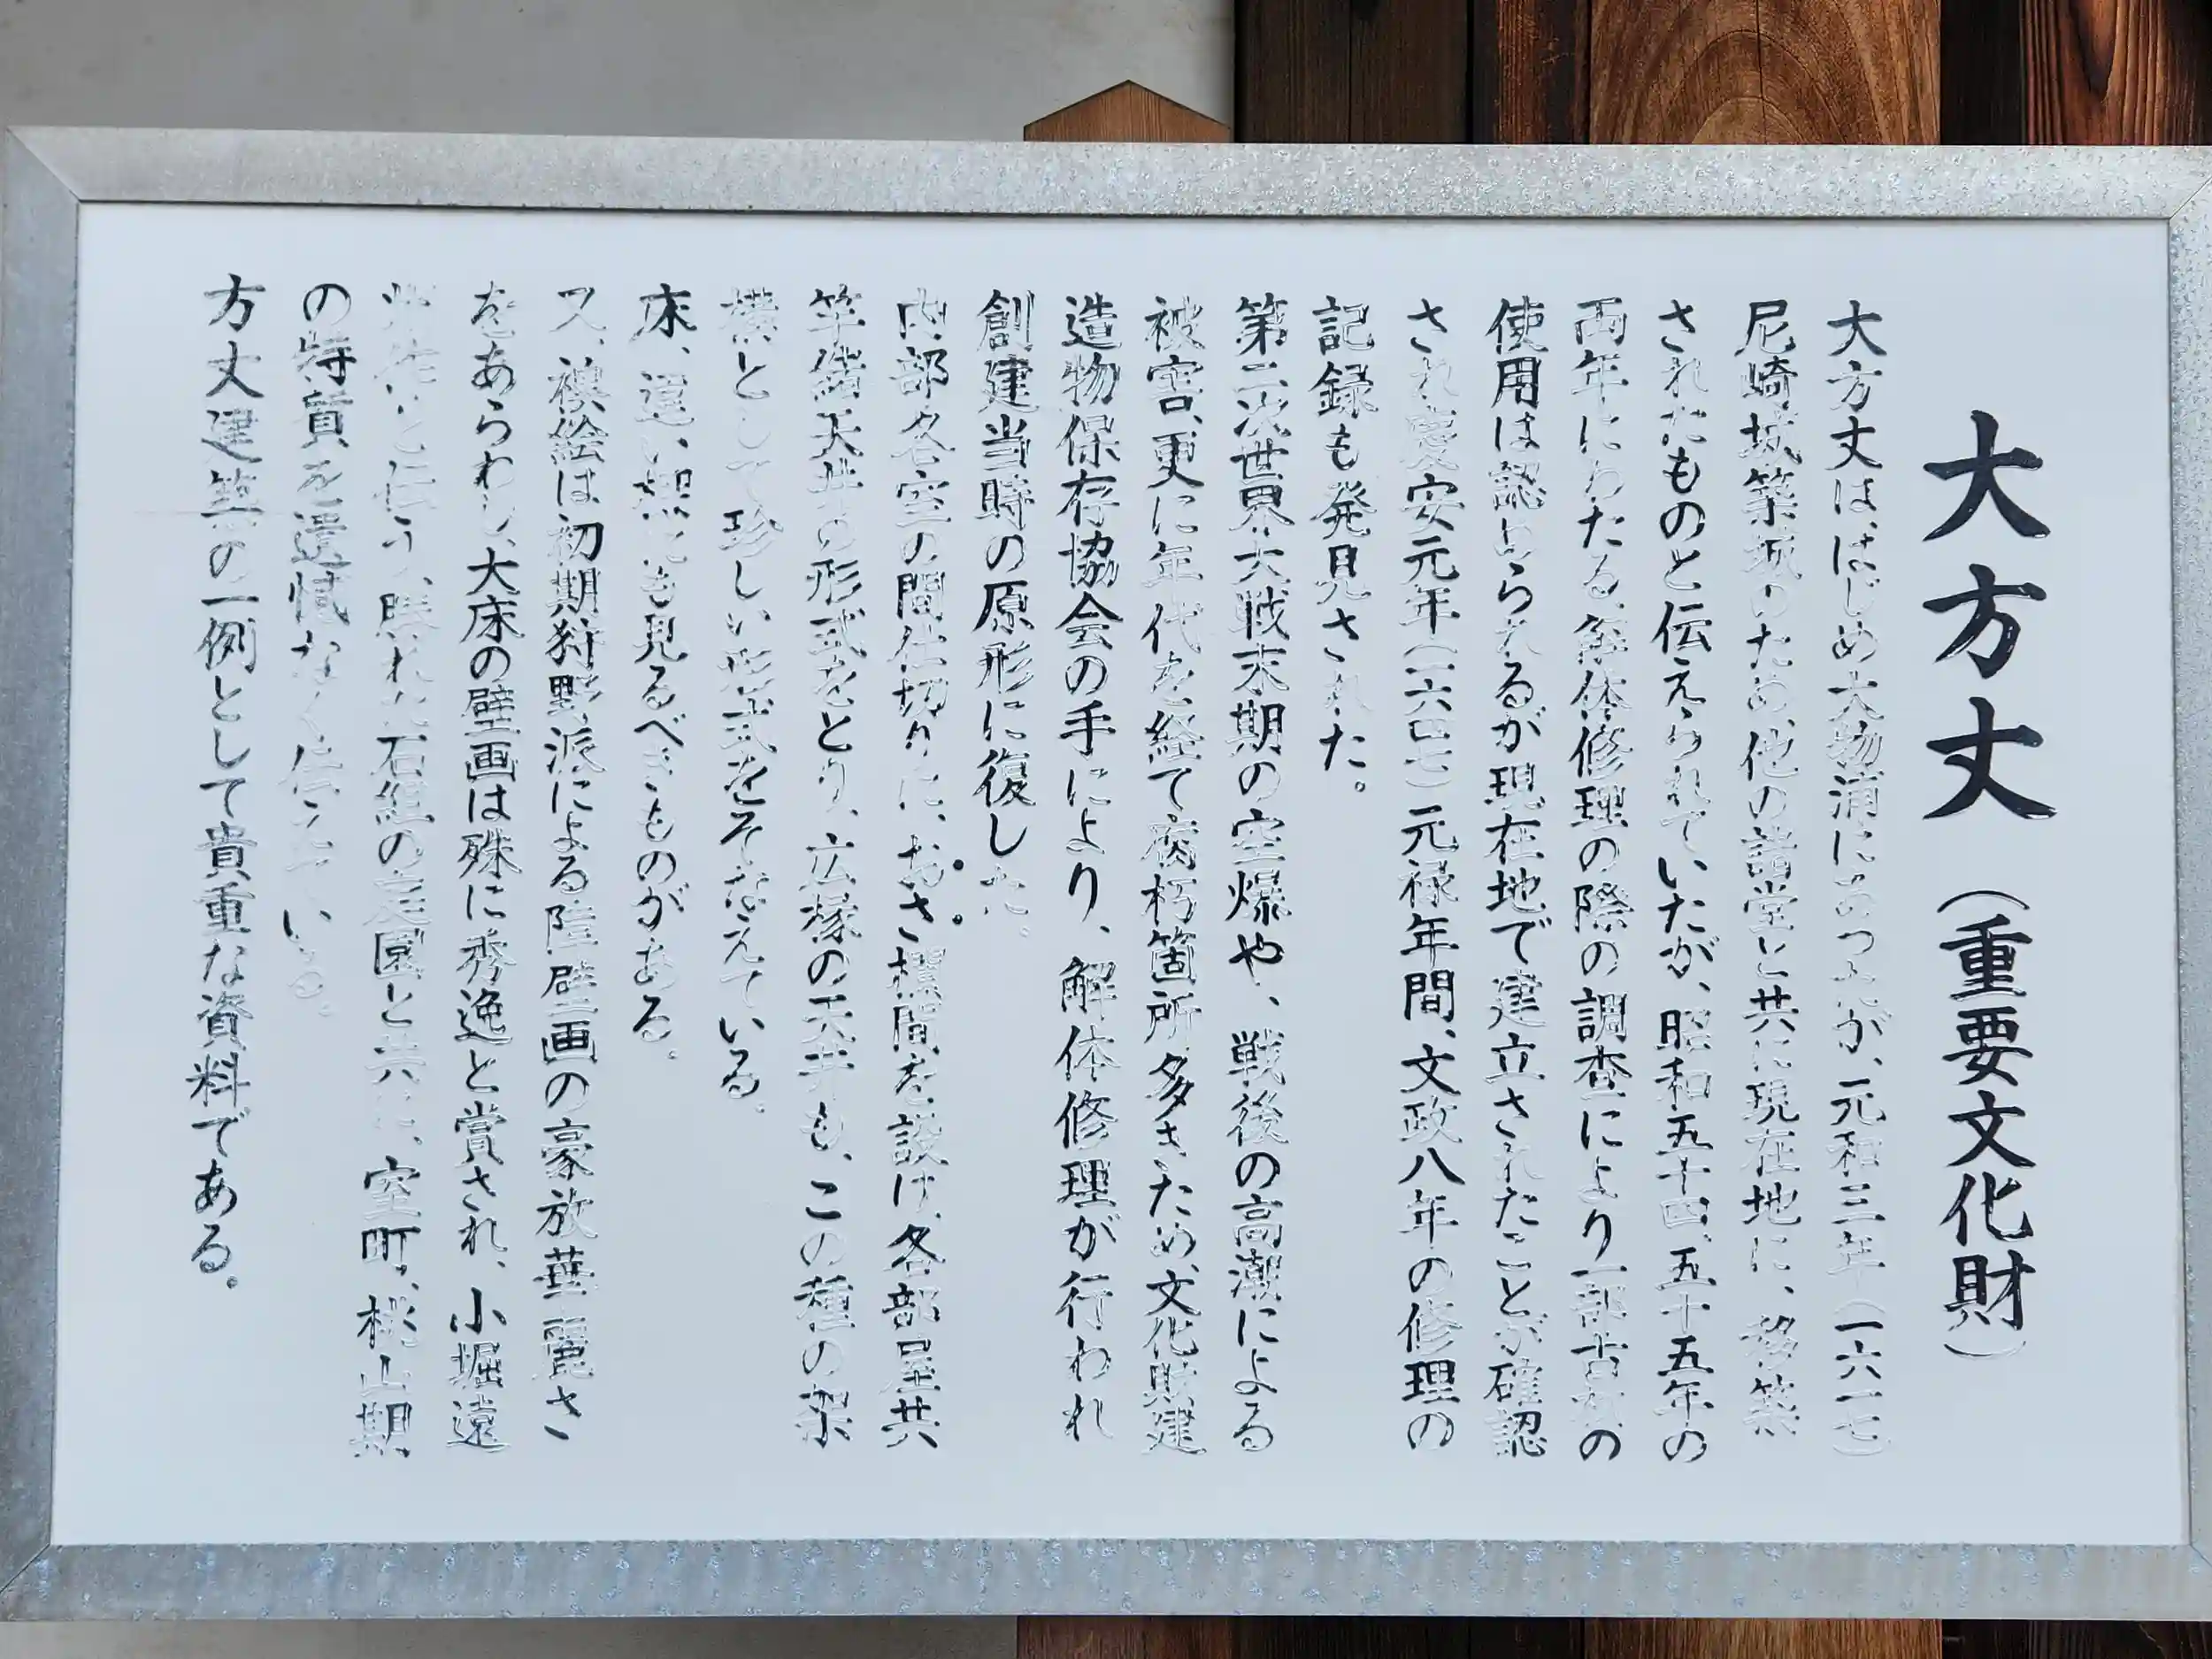 大方丈（重要文化財）
大方丈は、はじめ大物浦にあつたが、元和三年（一六一七）
尼崎城築城のため、他の諸堂と共に現在地に、移築
されたものと伝えられていたが、昭和五十四、五十五年の
両年にわたる解体修理の際の調査により一部古材の
使用は認められるが現在地で建立されたことが確認
され慶安元年（一六四七）元禄年間、文政八年の修理の
記録も発見された。
第二次世界大戦末期の空爆や、戦後の高潮による
被害、更に年代を経て腐朽箇所多きため、文化財建
造物保存協会の手により、解体修理が行われ
創建当時の原形に復した。
内部各室の間仕切りに、おさ欄間を設け、各部屋共
竿縁天井の形式をとり、広縁の天井も、この種の架
構として珍しい形式をそなえている。
床、違い棚にも見るべきものがある。
又、襖絵は初期狩野派による障壁画の豪放華麗さ
をあらわし、大床の壁画は殊に秀逸と賞され、小堀遠
州作と伝う、勝れた石組の庭園と共に、室町、桃山期
の特質を遺憾なく伝えている。
方丈建築の一例として貴重な資料である。